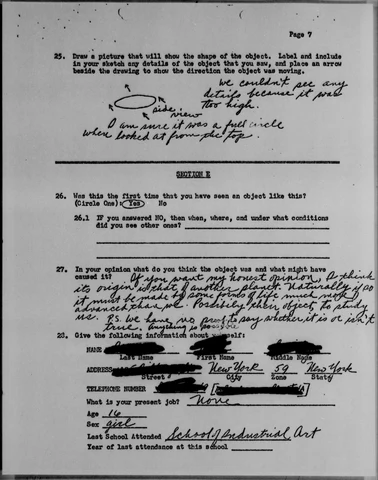 Page 7
25. Draw a picture that will show the shape of the object. Label and include
in your sketch any details of the object that you saw, and place an arrow
beside the drawing to show the direction the object was moving.
we couldn't see any
details because it was
too high.
side view
I am sure it was a full circle
when looked at from the top.
SECTION E
26. Was this the first time that you have seen an object like this?
(Circle One) Yes No
26.1 IF you answered NO, then when, where, and under what conditions
did you see other ones?
27. In your opinion what do you think the object was and what might have
caused it? If you want my honest opinion, I think
its origin is that of another planet. Naturally if so
it must be made by some forms of life much more
advanced than we. Possibily their object to study
us. P.S. We have no proof to say whether it is or isn't
true. Anything is possible
28. Give the following information about yourself:
NAME
Last Name First Name Middle Name
ADDRESS New York 59 New York
Street City Zone State
TELEPHONE NUMBER
What is your present job? None
Age 16
Sex girl
Last School Attended School of Industrial Art
Year of last attendance at this school